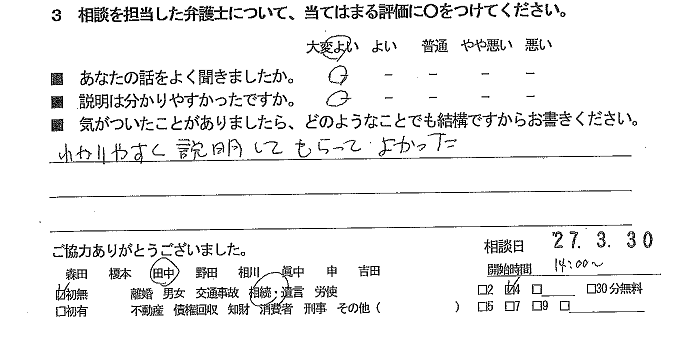 3 相談を担当した弁護士について、当てはまる評価に〇をつけてください。
大変よい よい 普通 やや悪い 悪い
■ あなたの話をよく聞きましたか。 － － － －
■ 説明は分かりやすかったですか。 － － － －
■ 気がついたことがありましたら、どのようなことでも結構ですからお書きください。
わかりやすく説明してもらってよかった
ご協力ありがとうございました。 相談日 27. 3. 30
森田 榎本 田中 野田 相川 眞中 申 吉田 開始時間 14:00～
☑初無 離婚 男女 交通事故 相続・遺言 労使 □2 ☑4 □ □30分無料
□初有 不動産 債権回収 知財 消費者 刑事 その他（ ） □5 □7 □9 □